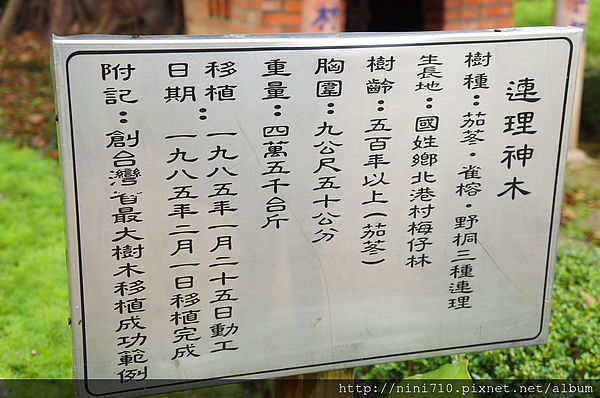 連理神木
樹種：茄苳．雀榕．野桐三種連理
生長地：國姓鄉北港村梅仔林
樹齡：五百年以上（茄苳）
胸圍：九公尺五十公分
重量：四萬五千台斤
移植：一九八五年一月二十五日動工
日期：一九八五年二月一日移植完成
附記：創台灣省最大樹木移植成功範例
http://nini710.pixnet.net/album